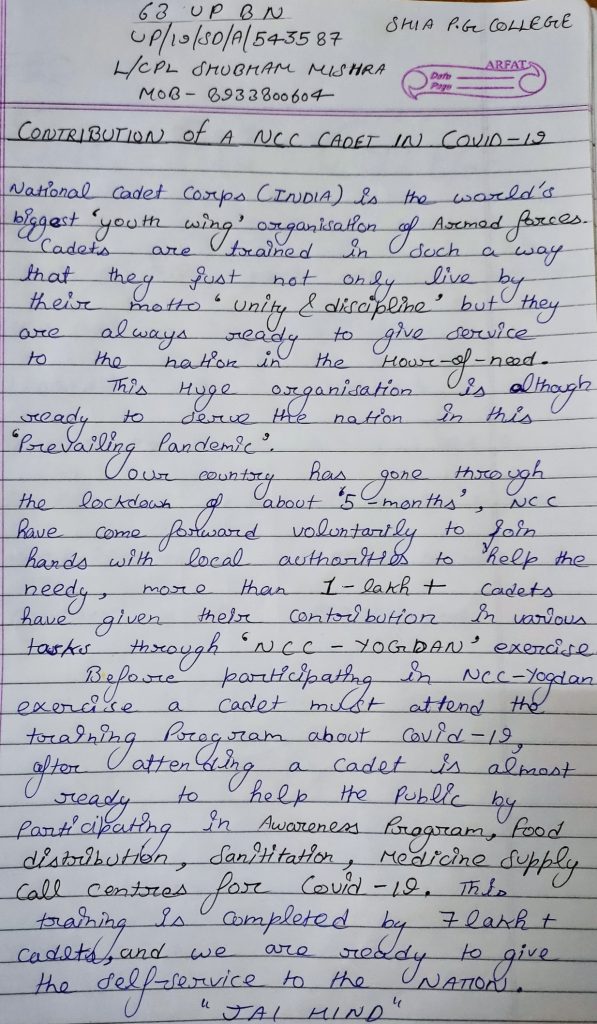 63 UP BN
UP/19/SD/A/543587
SHIA P.G COLLEGE
L/CPL SHUBHAM MISHRA
MOB- 8933800604
ARFAT
Date
Page
CONTRIBUTION of A NCC CADET IN COVID-19
National Cadet Corps (INDIA) is the world's
biggest 'youth wing' organisation of Armed forces.
Cadets are trained in such a way
that they just not only live by
their motto 'unity & discipline' but they
are always ready to give service
to the nation in the Hour-of-need.
This Huge organisation is although
ready to serve the nation in this
'Prevailing Pandemic'.
Our country has gone through
the lockdown of about '5-months', NCC
have come forward voluntarily to join
hands with local authorities to help the
needy, more than 1-lakh + cadets
have given their contribution in various
tasks through 'NCC - YOGDAN' exercise
Before participating in NCC-Yogdan
exercise a cadet must attend the
training Program about Covid-19,
after attending a cadet is almost
ready to help the Public by
Participating in Awareness Program, Food
distribution, Sanititation, Medicine Supply
Call Centres for Covid-19. This
training is completed by 7 lakh +
cadets, and we are ready to give
the self-service to the NATION.
"JAI HIND"